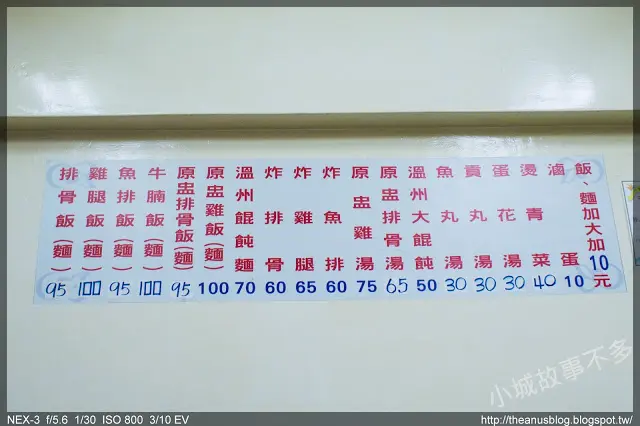 排骨飯(麵) 95
雞腿飯(麵) 100
魚排飯(麵) 95
牛腩飯(麵) 100
原盅排骨飯(麵) 95
原盅雞飯(麵) 100
溫州餛飩麵 70
炸排骨 60
炸雞腿 65
炸魚排 60
原盅雞湯 75
原盅排骨湯 65
溫州大餛飩 50
魚丸湯 30
貢丸湯 30
蛋花湯 30
燙青菜 40
滷蛋 10
飯、麵加大加10元
小城故事不多
NEX-3 f/5.6 1/30 ISO 800 3/10 EV
http://theanusblog.blogspot.tw/